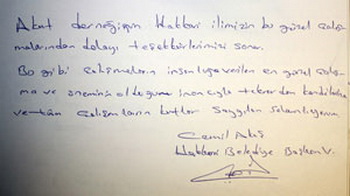 Akut derneğinin Hakkari ilimizin bu güzel çalış-
malarından dolayı teşekkürlerimizi sunar.
Bu gibi çalışmaların insanlığa verilen en güzel çalış-
ma ve önemini olduğunu inancıyla tekrardan kendilerine
ve tüm çalışmalarını kutlar Saygıları Selamlıyorum.
Cemil
Hakkari Belediye Başkan V.